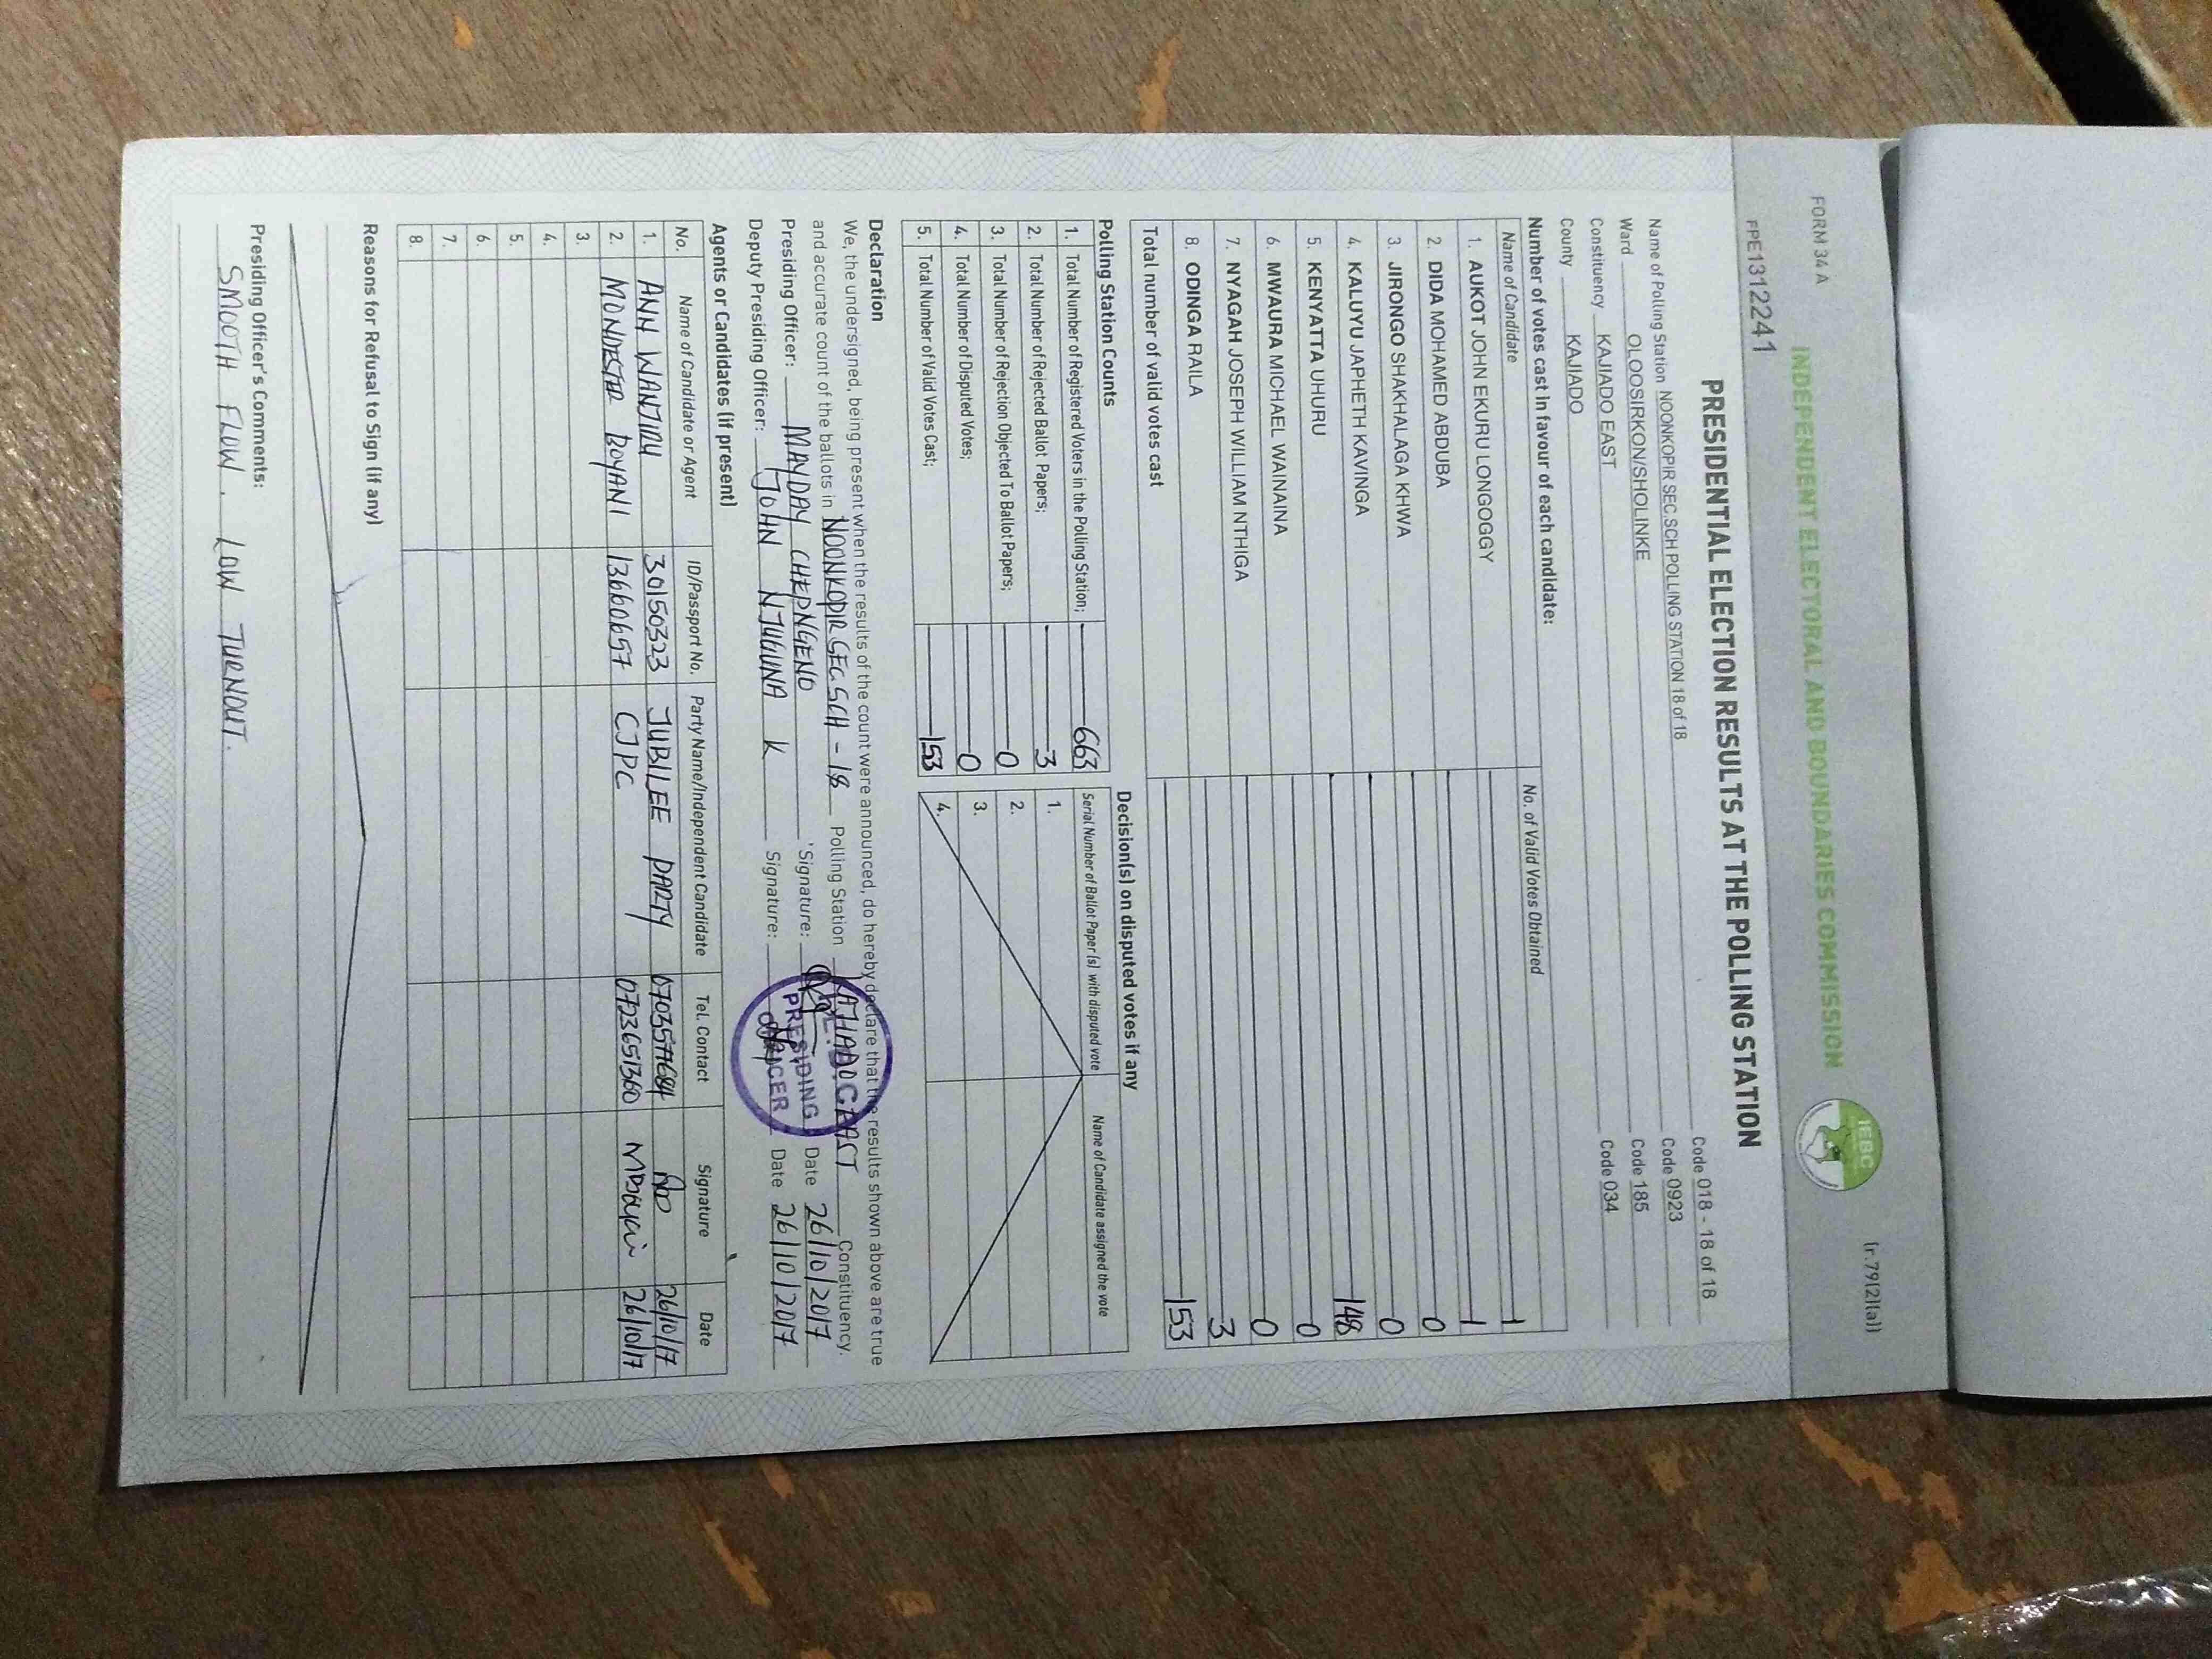 FORM 34 A
(r.79(2)(a))
INDEPENDENT ELECTORAL AND BOUNDARIES COMMISSION
IEBC
FPE1312241
PRESIDENTIAL ELECTION RESULTS AT THE POLLING STATION
Name of Polling Station NOONKOPIR SEC.SCH POLLING STATION 18 of 18 Code 018 - 18 of 18
Ward OLOOSIRKON/SHOLINKE Code 0923
Constituency KAJIADO EAST Code 185
County KAJIADO Code 034
Number of votes cast in favour of each candidate:
Name of Candidate No. of Valid Votes Obtained
1. AUKOT JOHN EKURU LONGOGGY 1
2. DIDA MOHAMED ABDUBA 1
3. JIRONGO SHAKHALAGA KHWA 0
4. KALUYU JAPHETH KAVINGA 0
5. KENYATTA UHURU 148
6. MWAURA MICHAEL WAINAINA 0
7. NYAGAH JOSEPH WILLIAM NTHIGA 0
8. ODINGA RAILA 3
Total number of valid votes cast 153
Polling Station Counts
1. Total Number of Registered Voters in the Polling Station; 663
2. Total Number of Rejected Ballot Papers; 3
3. Total Number of Rejection Objected To Ballot Papers; 0
4. Total Number of Disputed Votes; 0
5. Total Number of Valid Votes Cast; 153
Decision(s) on disputed votes if any
Serial Number of Ballot Paper(s) with disputed vote Name of Candidate assigned the vote
1.
2.
3.
4.
Declaration
We, the undersigned, being present when the results of the count were announced, do hereby declare that the results shown above are true
and accurate count of the ballots in NOONKOPIR SEC SCH - 18 Polling Station KAJIADO EAST Constituency.
Presiding Officer: MAYDAY CHEPNGENO Signature: Date 26/10/2017
Deputy Presiding Officer: JOHN NJUGUNA K Signature: Date 26/10/2017
PRESIDING
OFFICER
Agents or Candidates (if present)
No. Name of Candidate or Agent ID/Passport No. Party Name/Independent Candidate Tel. Contact Signature Date
1. ANN WANJIRU 30150323 JUBILEE PARTY 26/10/17
2. BOYANI 13660657 CJPC 0723651360 26/10/17
3.
4.
5.
6.
7.
8.
Reasons for Refusal to Sign (if any)
Presiding Officer's Comments:
SMOOTH FLOW. LOW TURNOUT.